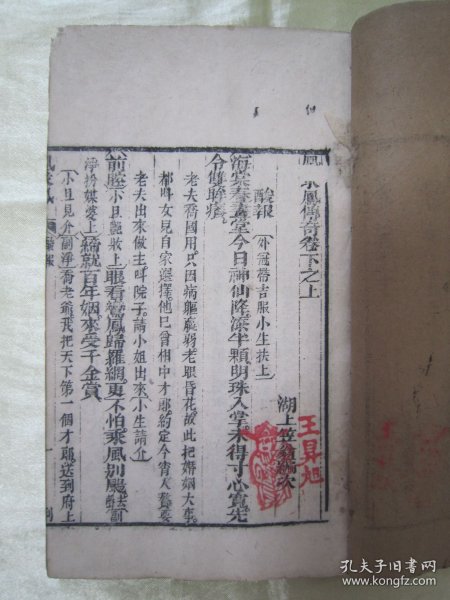 求鳳傳奇卷下之上
湖上笠翁編次
酸報 外冠帶吉服小生扶上
海棠春 華堂今日神仙降滲半顆明珠入掌未得寸心寬先
令雙眸癢
老夫喬國用只因病軀羸弱老景昏花故此把婚姻大事
都叫女兒自家選擇他已曾相中才郎約定今宵入贅要
老夫出來做主叫院子請小姐出來小生請介
前腔 小旦艷妝上眼看鸞鳳歸羅網更不怕乘風別颺副
淨扮媒婆上 締就百年姻來受千金賞
小旦見介副淨喬老爺我把天下第一個才郎送到府上
酸報
王昇旭
孔夫子旧书网
www.kongfz.com